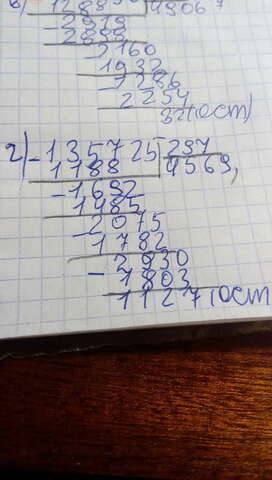 4906
2160
1932
1286
2254
32(ост)
2) 1357 25 297
1188 4569,
1692
1485
2075
1782
2930
1803
1127(ост